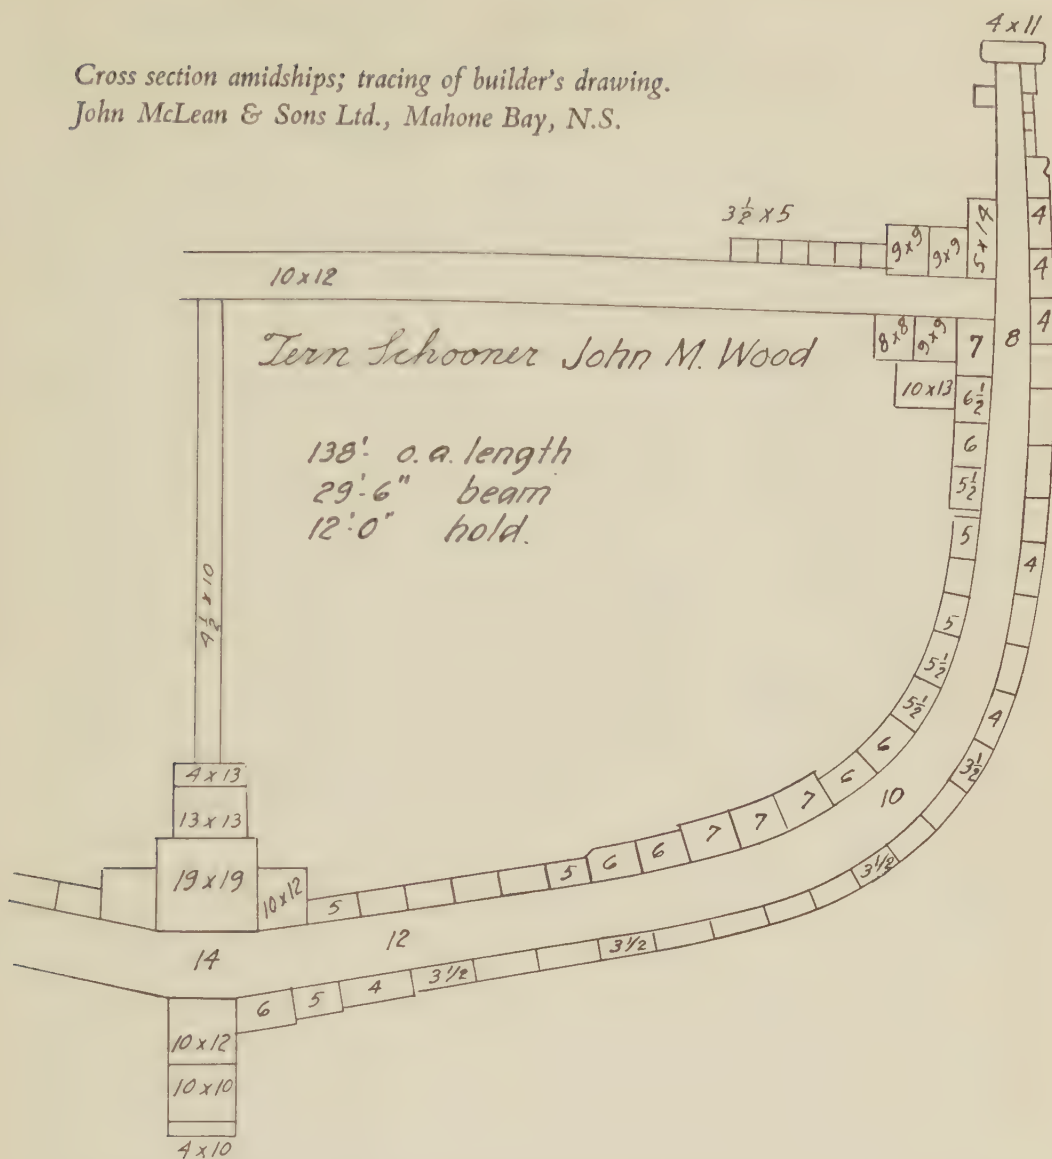 4 x 11
Cross section amidships; tracing of builder's drawing.
John McLean & Sons Ltd., Mahone Bay, N.S.
3 1/2 x 5
9x9
9x9
5 x 14
4
4
4
10 x 12
Tern Schooner John M. Wood
8 x 8
9x9
7
8
10 x 13
6 1/2
6
5 1/2
5
138'- o.a. length
29'-6" beam
12'-0" hold.
4 1/2 x 10
4
5
5 1/2
5 1/2
6
6
7
7
7
6
6
5
4
3 1/2
10
4 x 13
13 x 13
19 x 19
10 x 12
5
12
14
3 1/2
3 1/2
3 1/2
4
5
6
10 x 12
10 x 10
4 x 10